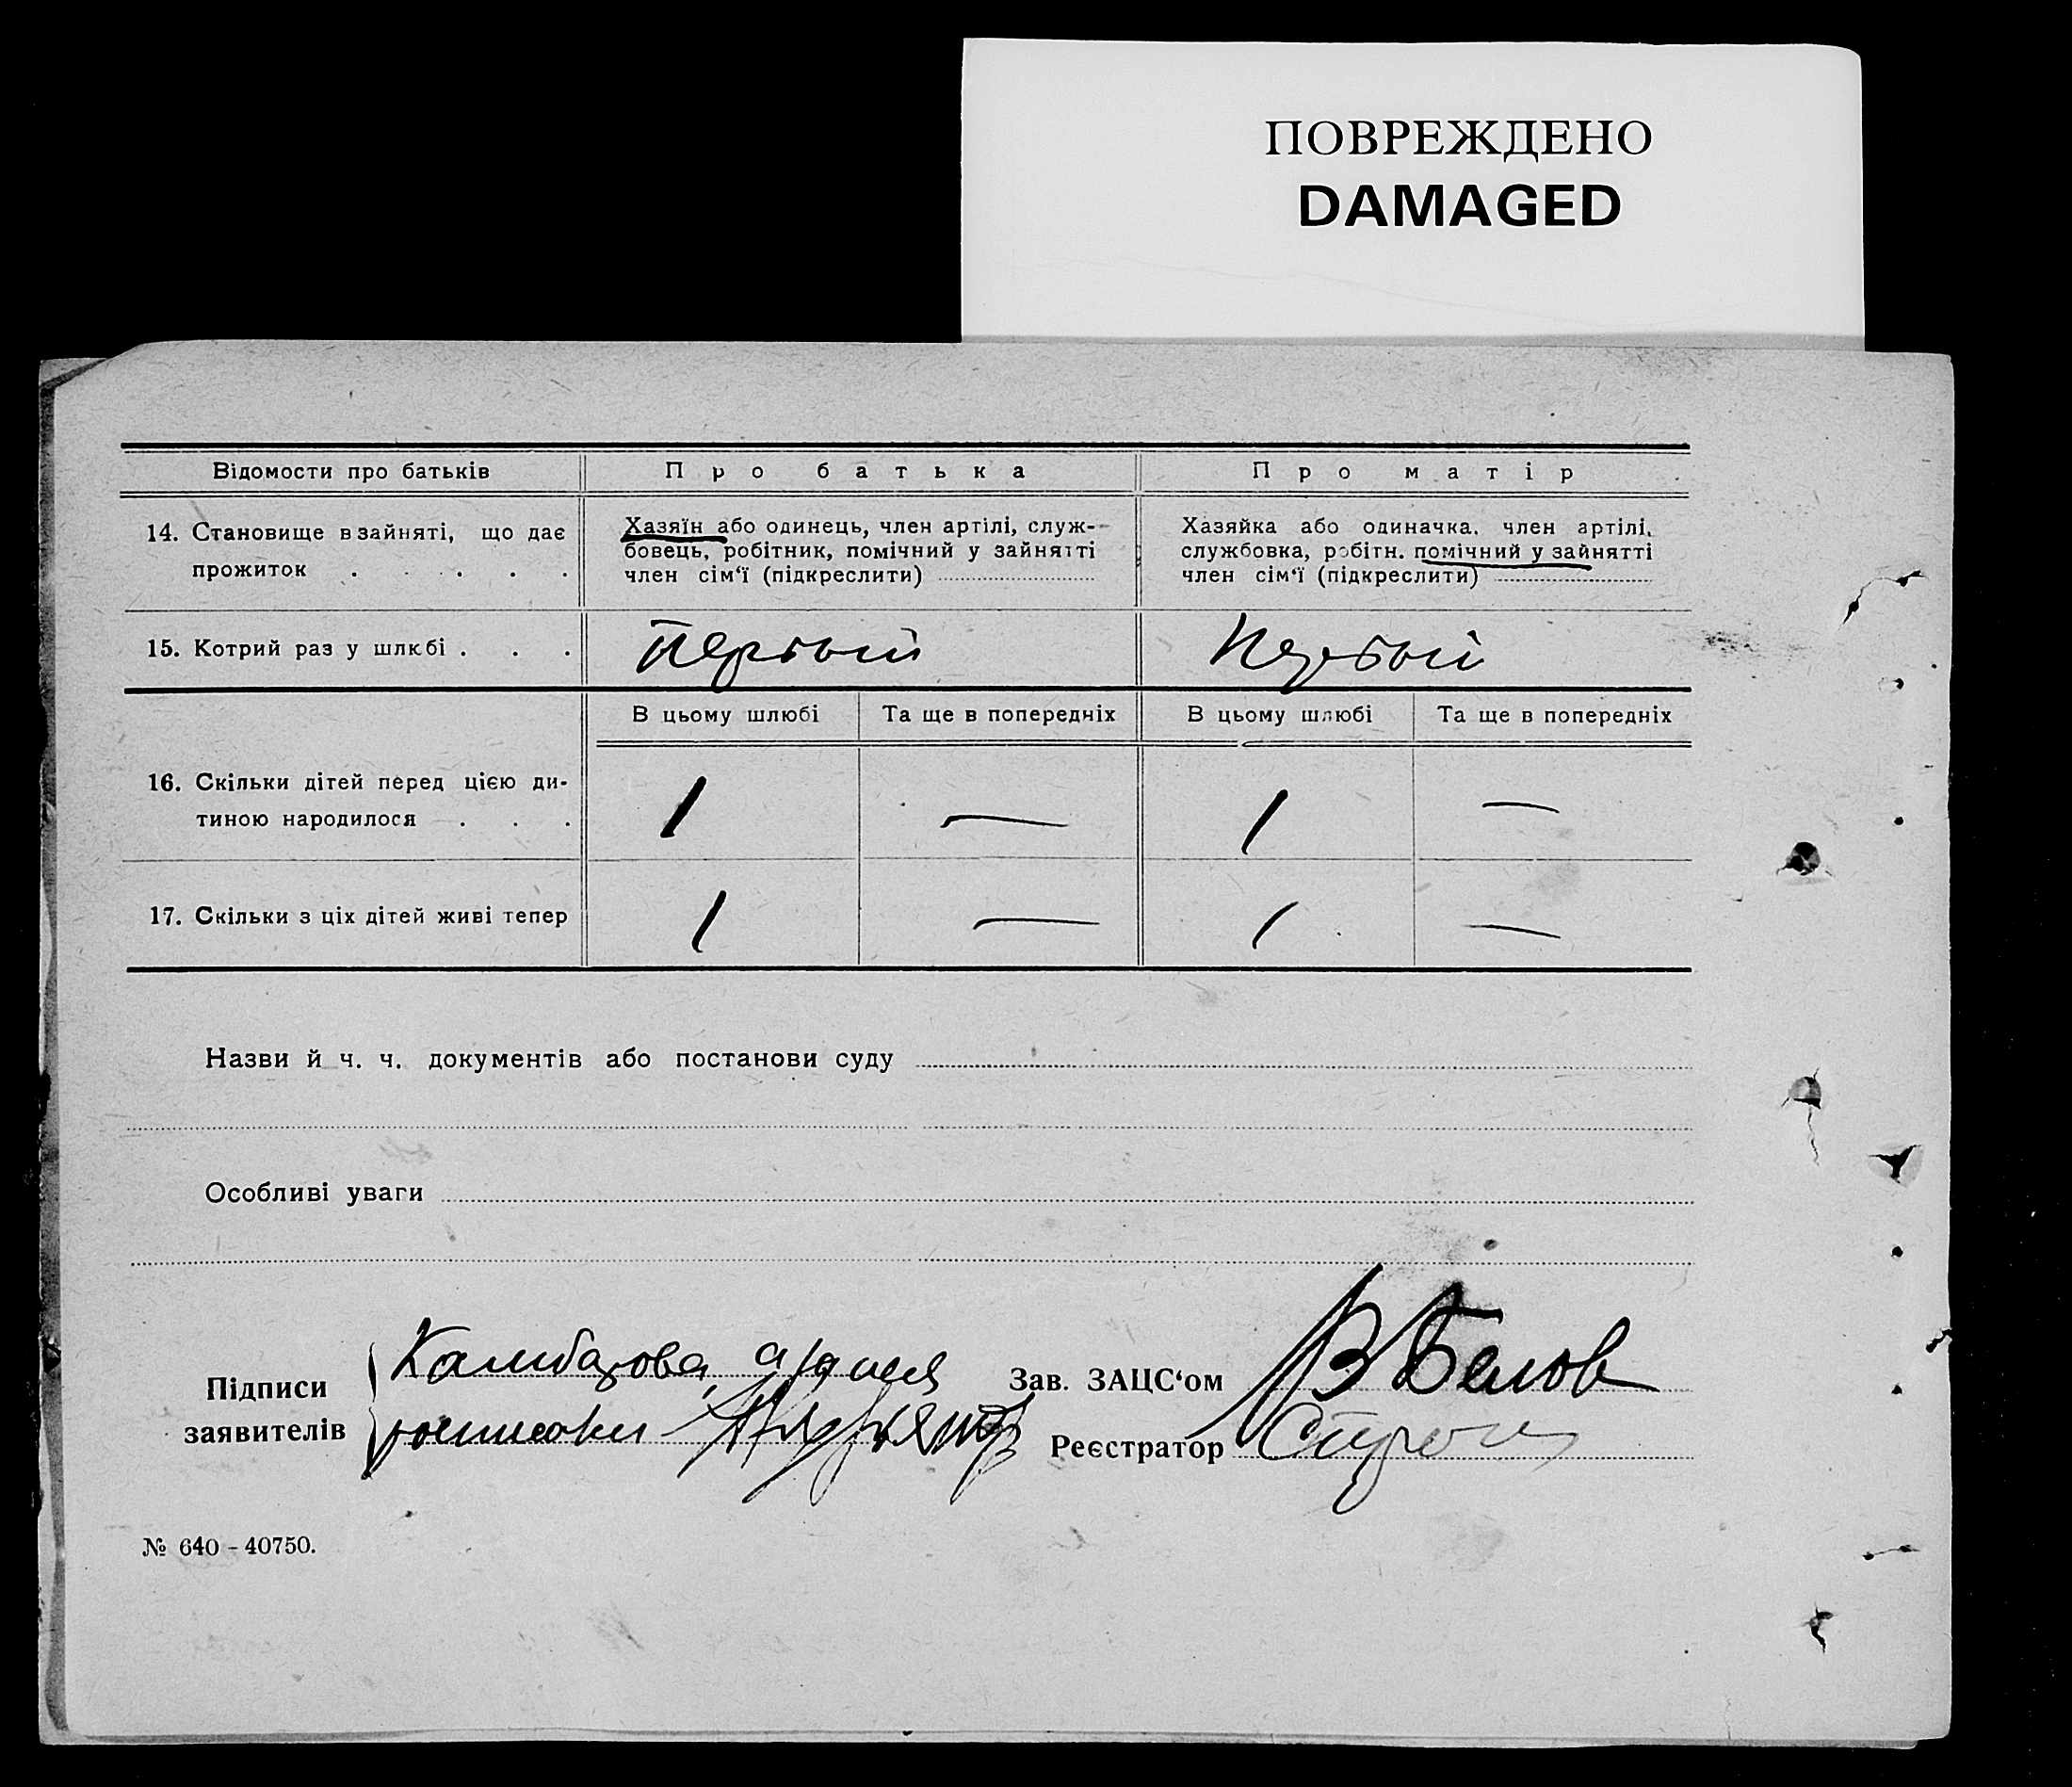 ПОВРЕЖДЕНО
DAMAGED
Відомости про батьків
Про батька
Про матір
14. Становище в зайняті, що дає
прожиток . . . . .
Хазяїн або одинець, член артілі, служ-
бовець, робітник, помічний у зайнятті
член сім‘ї (підкреслити)
Хазяйка або одиначка, член артілі,
службовка, робітн. помічний у зайнятті
член сім‘ї (підкреслити)
15. Котрий раз у шлюбі . . .
Первый
Первый
В цьому шлюбі
Та ще в попередніх
В цьому шлюбі
Та ще в попередніх
16. Скільки дітей перед цією ди-
тиною народилося . . .
1
—
1
—
17. Скільки з ціх дітей живі тепер
1
—
1
—
Назви й ч. ч. документів або постанови суду
Особливі уваги
Підписи
заявителів
Зав. ЗАЦС‘ом
В Белов
Реєстратор
№ 640 - 40750.